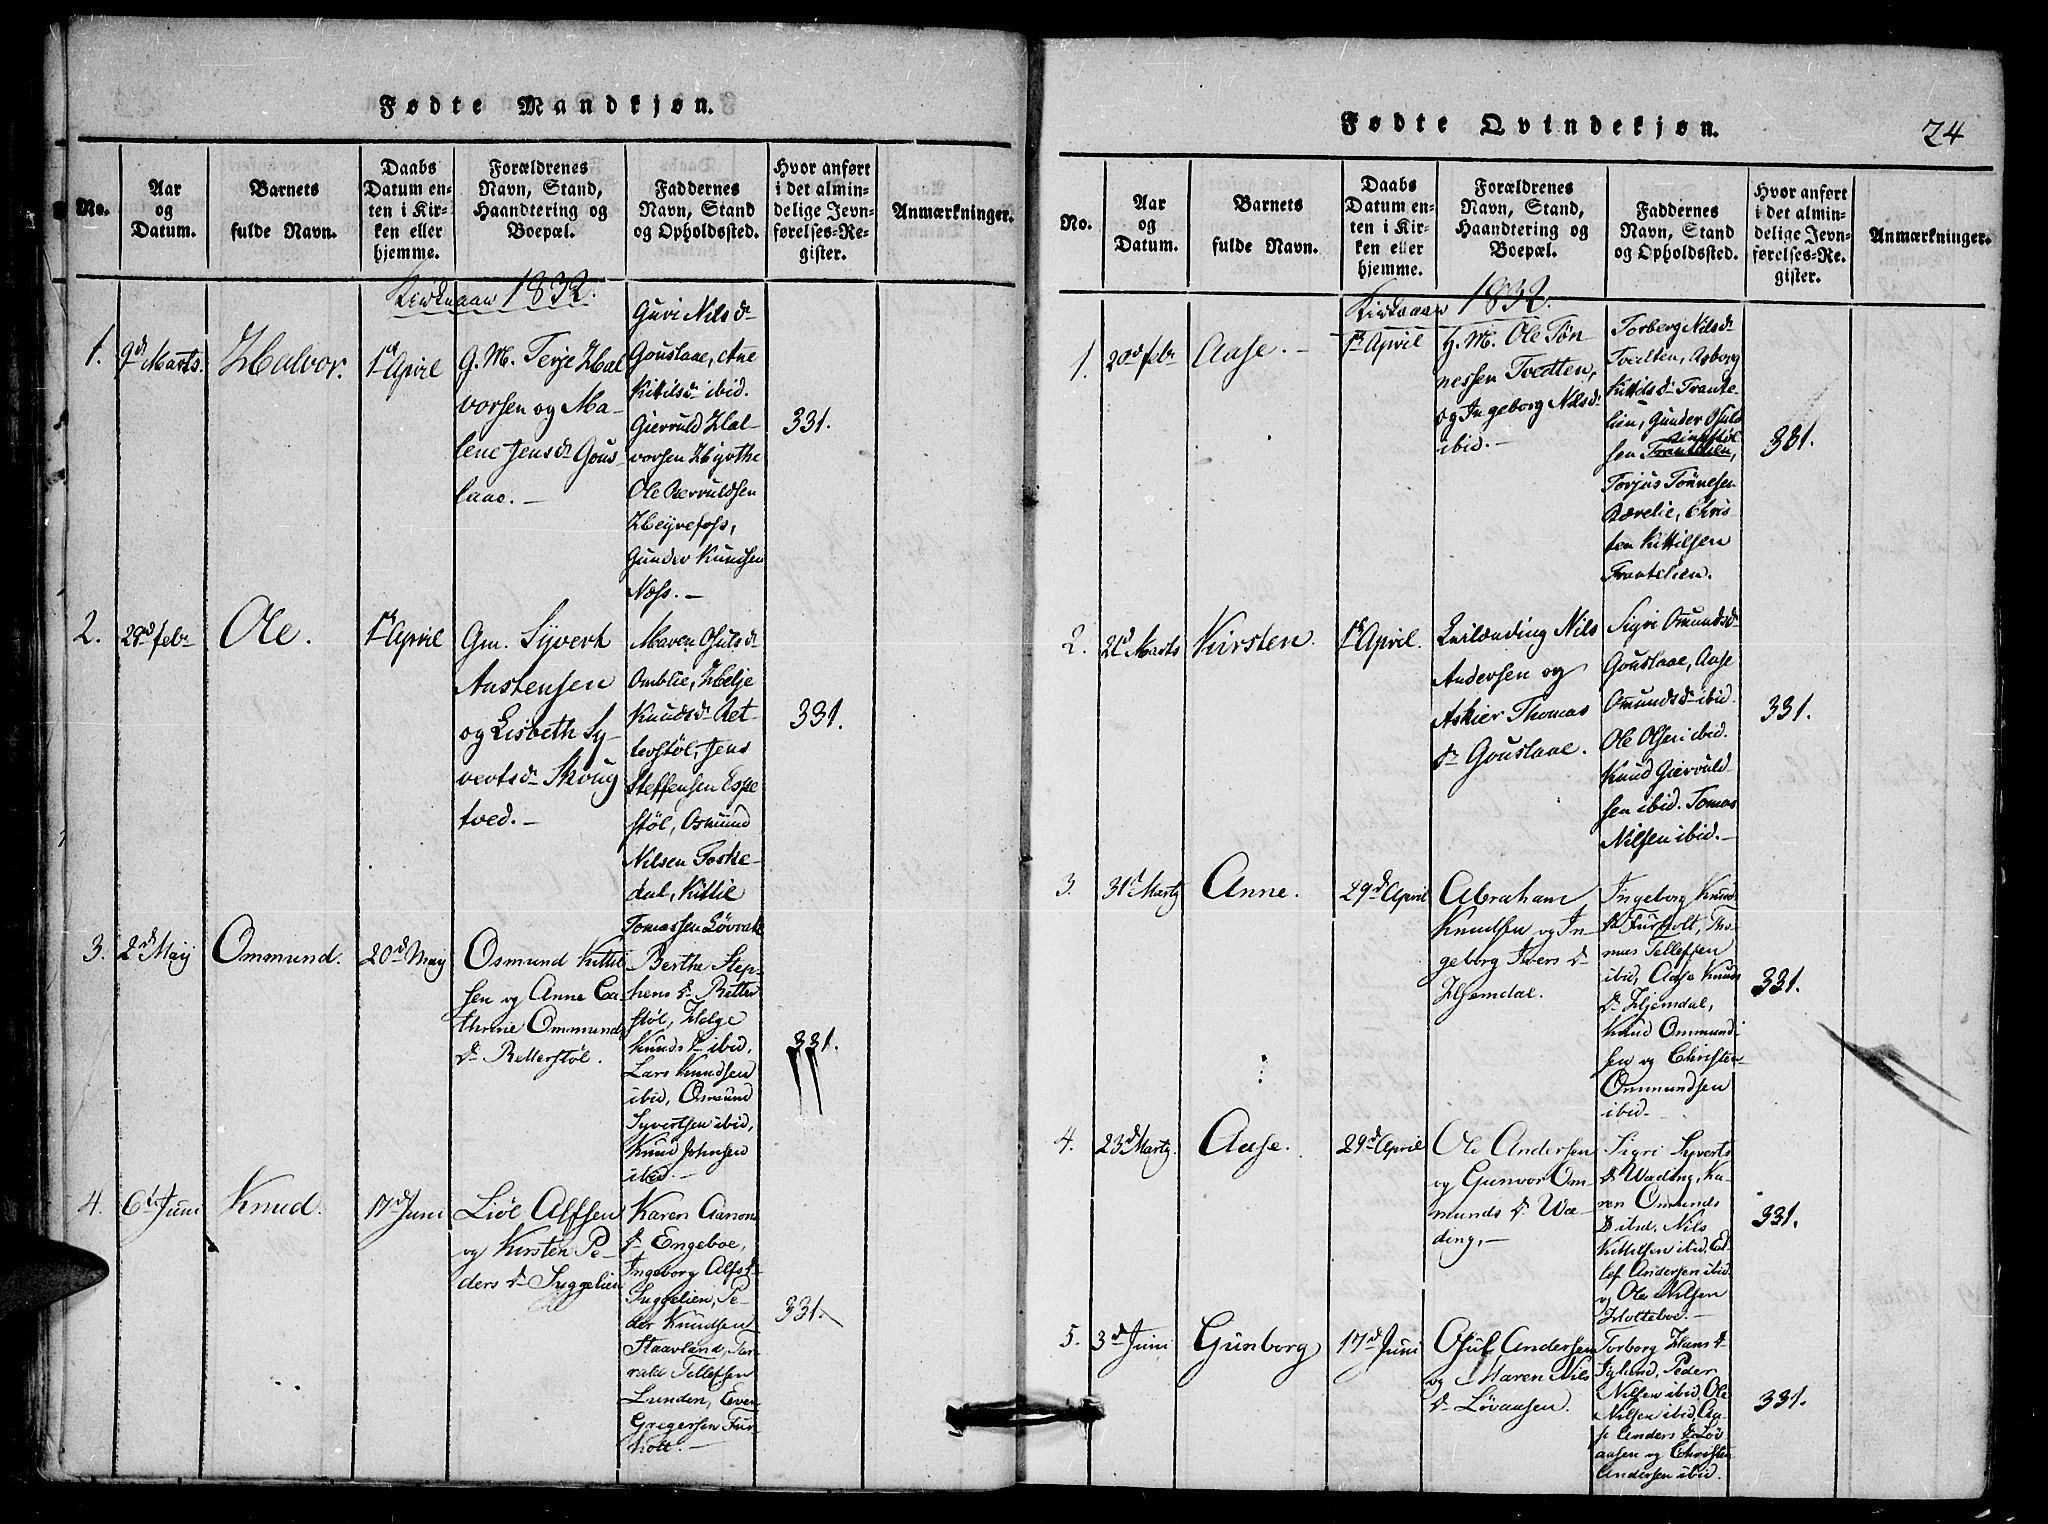 Fødte Mandkjøn.
No.
Aar
og
Datum.
Barnets
fulde Navn.
Daabs
Datum en-
ten i Kir-
ken eller
hjemme.
Forældrenes
Navn, Stand,
Haandtering og
Boepæl.
Faddernes
Navn, Stand
og Opholdssted.
Hvor anført
i det almin-
delige Jevn-
førelses-Re-
gister.
Anmærkninger.
1832.
1.
9d Marts.
Halvor.
1st April
G. M. Terje Hal
vorsen og Ma-
lene Jensdr Gous-
laae.-
Guri Nilsdr
Gouslaae, Ane
Kitilsdr ibid.
Giervuld Hal-
vorsen
Ole Bervuldsen
Høyrefoss,
Gunder Knudsen
Næss.-
331.
2.
29d febr
Ole.
1st April
Gm. Syvert
Aastensen
og Lisbeth Sy-
vertsdr Skoug
tved.-
Maren Osulsdr
Omblie, Helje
Knudsdr Ret-
terstøl, Jens
Steffensen Espe
støl, Osmund
Nilsen Toske-
dal, Kittil
Tomassen
331.
3.
2d Maij
Ommund.
20d May
Osmund Kittel
sen og Anne Ca-
thrine Ommunds
dr Retterstøl.
Berthe Step-
hens dr Retter
støl, Helge
Knuds dr ibid,
Lars Knudsen
ibid, Osmund
Syvertsen ibid,
Knud Johnsen
ibid.-
331.
4.
6t Juni
Knud.
17d Juni
Liøl Alfsen
og Kirsten Pe-
ders dr Suggelien
Karen Aanons
dr Engeboe,
Ingeborg Alfsd
Suggelien, Pe-
der Knudsen
Staavland, Tar-
rald Tellefsen
Lunden, Even
Gregersen Fur-
holt.-
331.
Fødte Qvindekjøn.
24
No.
Aar
og
Datum.
Barnets
fulde Navn.
Daabs
Datum en-
ten i Kir-
ken eller
hjemme.
Forældrenes
Navn, Stand,
Haandtering og
Boepæl.
Faddernes
Navn, Stand
og Opholdssted.
Hvor anført
i det almin-
delige Jevn-
førelses-Re-
gister.
Anmærkninger.
1832.
1.
20d febr
Aase.-
1st April
G. M. Ole Tøn
nessen Tvedten,
og Ingeborg Nilsdr
ibid.-
Torberg Nilsdr
Tvedten, Asborg
Kittilsdr Trante-
lien, Gunder Osuld
sen Trantelien,
Torjus Tønnesen
Bærelie, Chris-
ten Kittilsen
Trantelien.
331.
2.
21d Marts
Kirsten.
1st April.
Nils
Andersen og
Askier Thomas
dr Gouslaae.
Sigri Omundsdr
Gouslaae, Aase
Omundsdr ibid.
Ole Olsen ibid.
Knud Giervuld-
sen ibid. Tomas
Nilsen ibid.-
331.
3.
31t Marty
Anne.
29d April
Abraham
Knudsen og In-
geborg Ivers dr
Hjemdal.
Ingeborg Knud
dr Furholt, Tho-
mas Tellefsen
ibid, Aase Knuds
dr Hjemdal,
Knud Ommund
sen og Christen
Ommundsen
ibid.-
331.
4.
23d Marty.
Aase.
29d April
Ole Andersen
og Gunvor Om
munds dr Wa-
ding,-
Sigri Syverts
dr Wading, Ka-
ren Omunds
dr ibid, Nils
Kittilsen ibid, El-
lef Andersen ibid.
og Ole Nilsen
Holteboe.-
331.
5.
3d Juni
Gunborg
17d Juni
Osul Andersen
og Maren Nils
dr Løvaasen.
Torborg Hans dr
Igland, Peder
Nilsen ibid, Ole
Nilsen ibid, Aa-
se Anders dr Løv
aasen og Christen
Andersen ibid.
331.